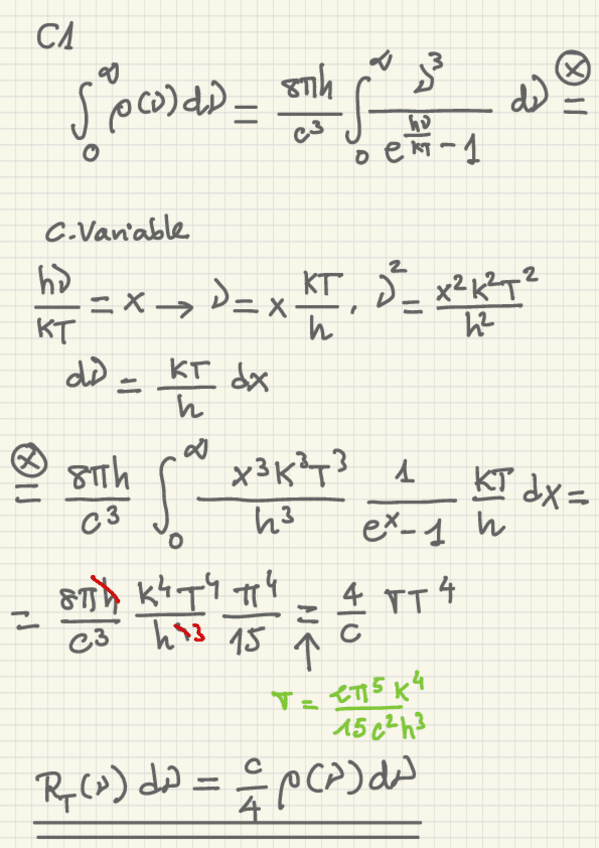 C1
∫₀^∞ ρ(ν)dν = 8πh/c³ ∫₀^∞ ν³/(e^(hν/KT) - 1) dν =^⊗
C.Variable
hν/KT = x → ν = x KT/h . ν² = x²K²T²/h²
dν = KT/h dx
⊗= 8πh/c³ ∫₀^∞ x³K³T³/h³ 1/(e^x - 1) KT/h dx =
= 8πh/c³ K⁴T⁴/h³ π⁴/15 = 4/c σT⁴
↑
σ = 2π⁵K⁴/15c²h³
R_T(ν) dν = c/4 ρ(ν)dν